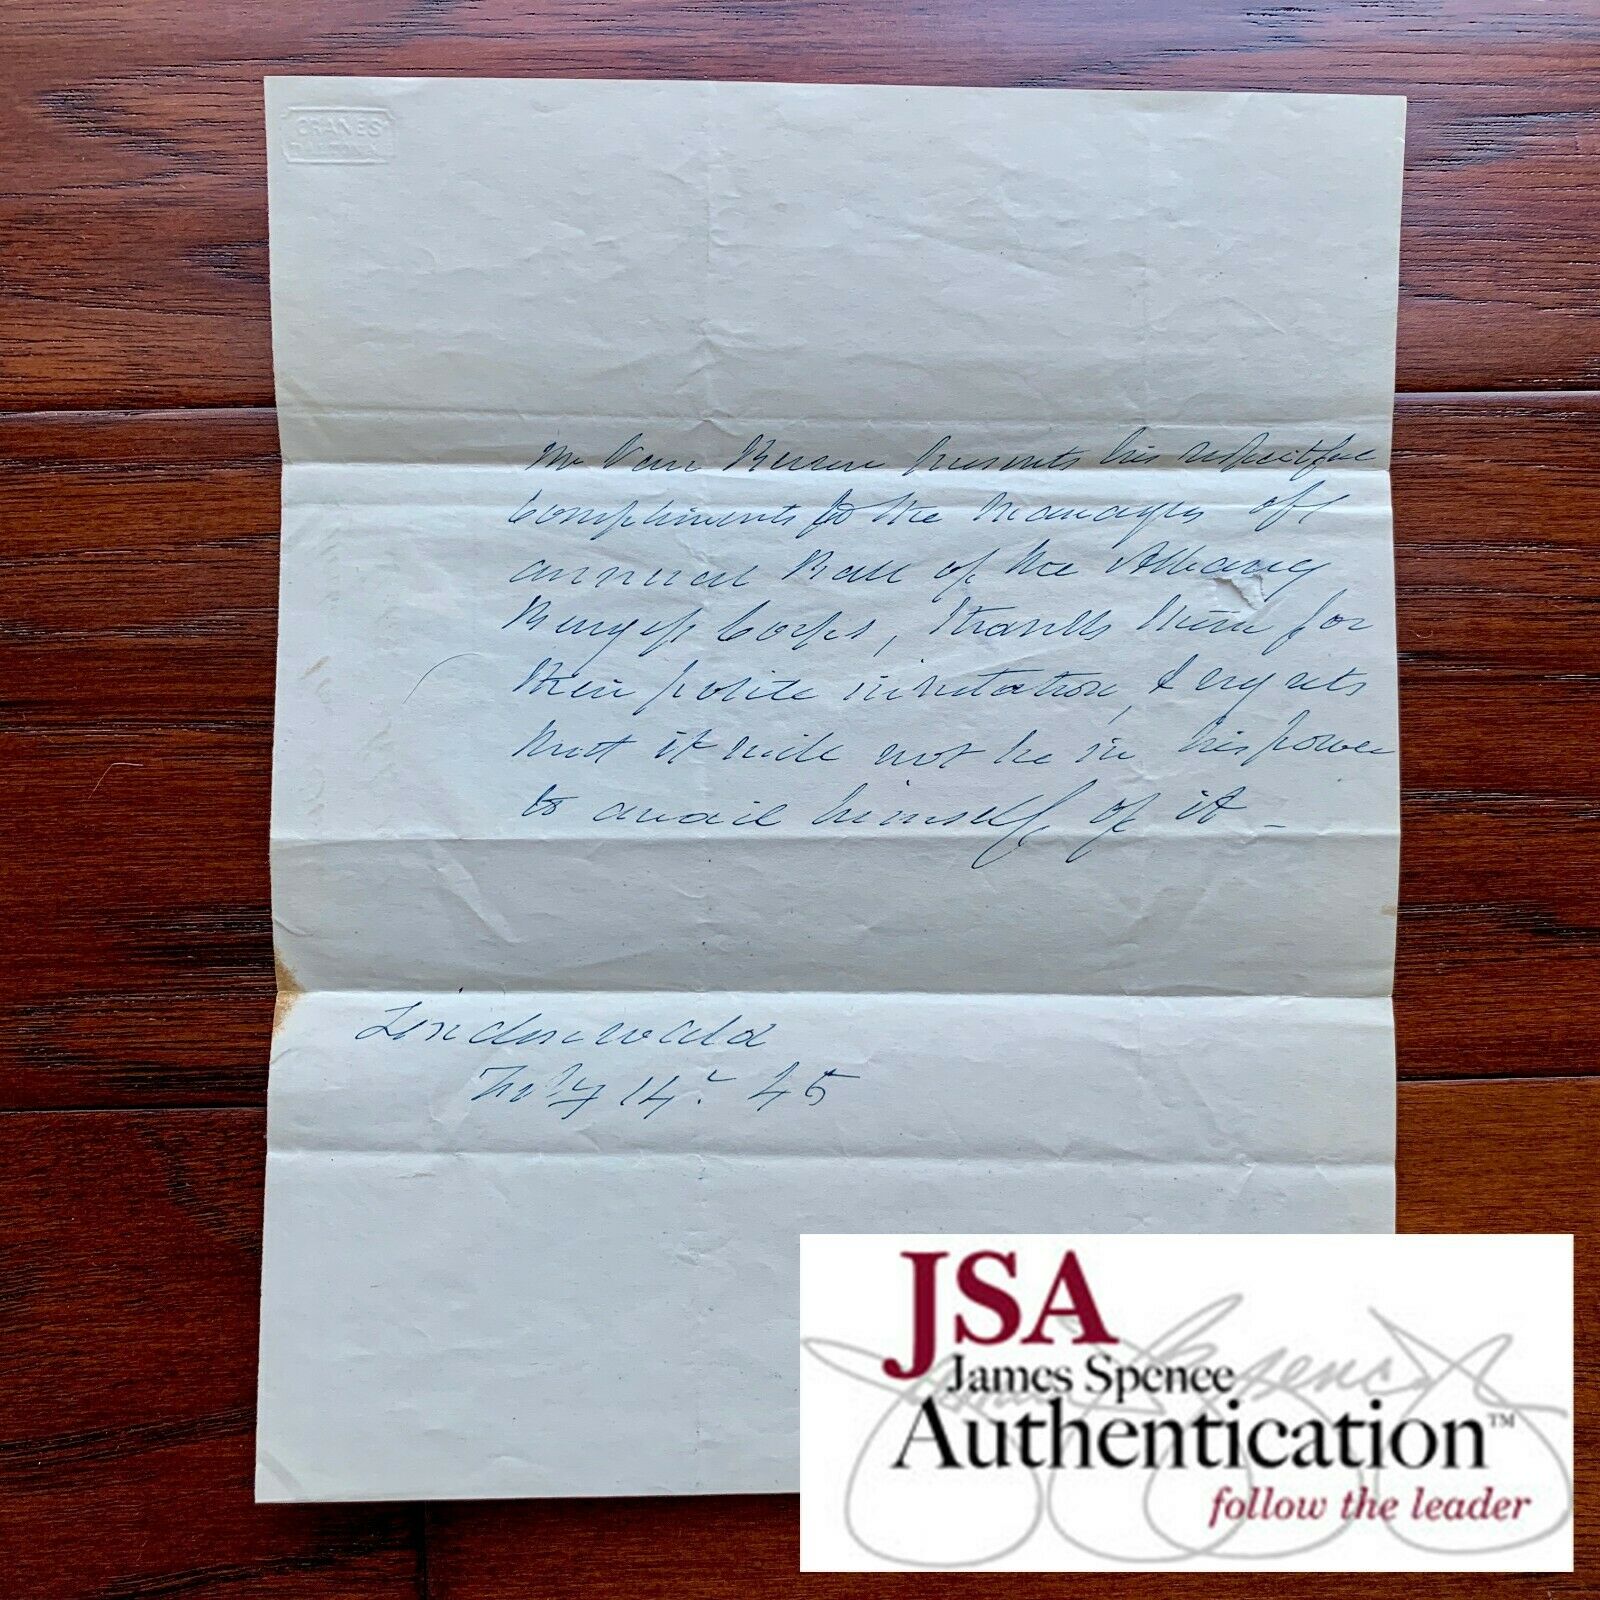 CRANES
DALTON
Mr Van Buren presents his respectful
compliments to the Managers of
annual Ball of the Albany
Burgess Corps, thanks them for
their polite invitation, & regrets
that it will not be in his power
to avail himself of it _
Lindenwald
14. 45
JSA
James Spence
Authentication™
follow the leader